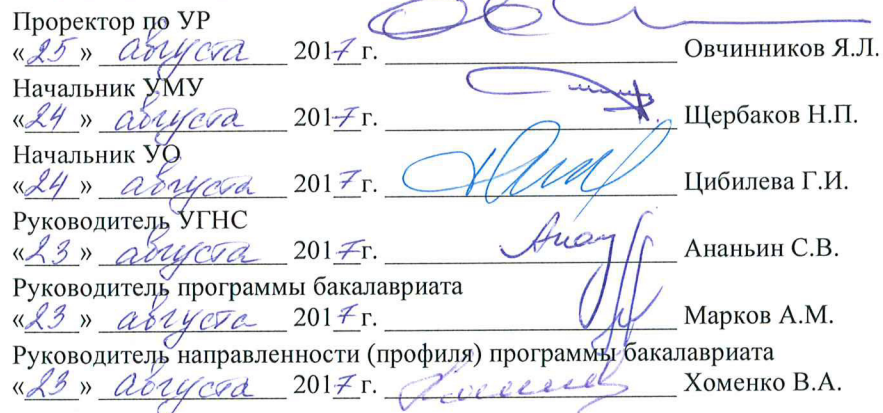 Проректор по УР
«25» августа 2017г. Овчинников Я.Л.
Начальник УМУ
«24» августа 2017г. Щербаков Н.П.
Начальник УО
«24» августа 2017г. Цибилева Г.И.
Руководитель УГНС
«23» августа 2017г. Ананьин С.В.
Руководитель программы бакалавриата
«23» августа 2017г. Марков А.М.
Руководитель направленности (профиля) программы бакалавриата
«23» августа 2017г. Хоменко В.А.